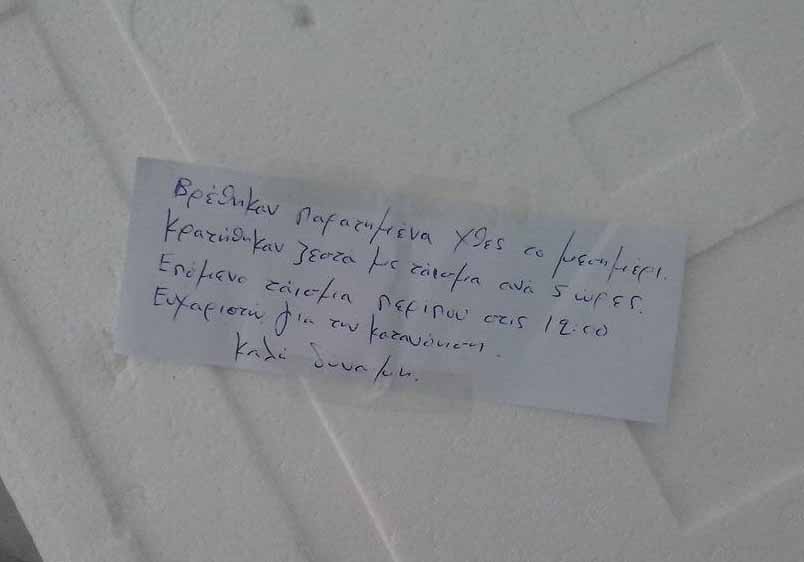 Βρέθηκαν παρατημένα χθες το μεσημέρι.
Κρατήθηκαν ζεστά με τάισμα ανά 5 ώρες.
Επόμενο τάισμα περίπου στις 12:00
Ευχαριστώ για την κατανόηση.
Καλή δύναμη.